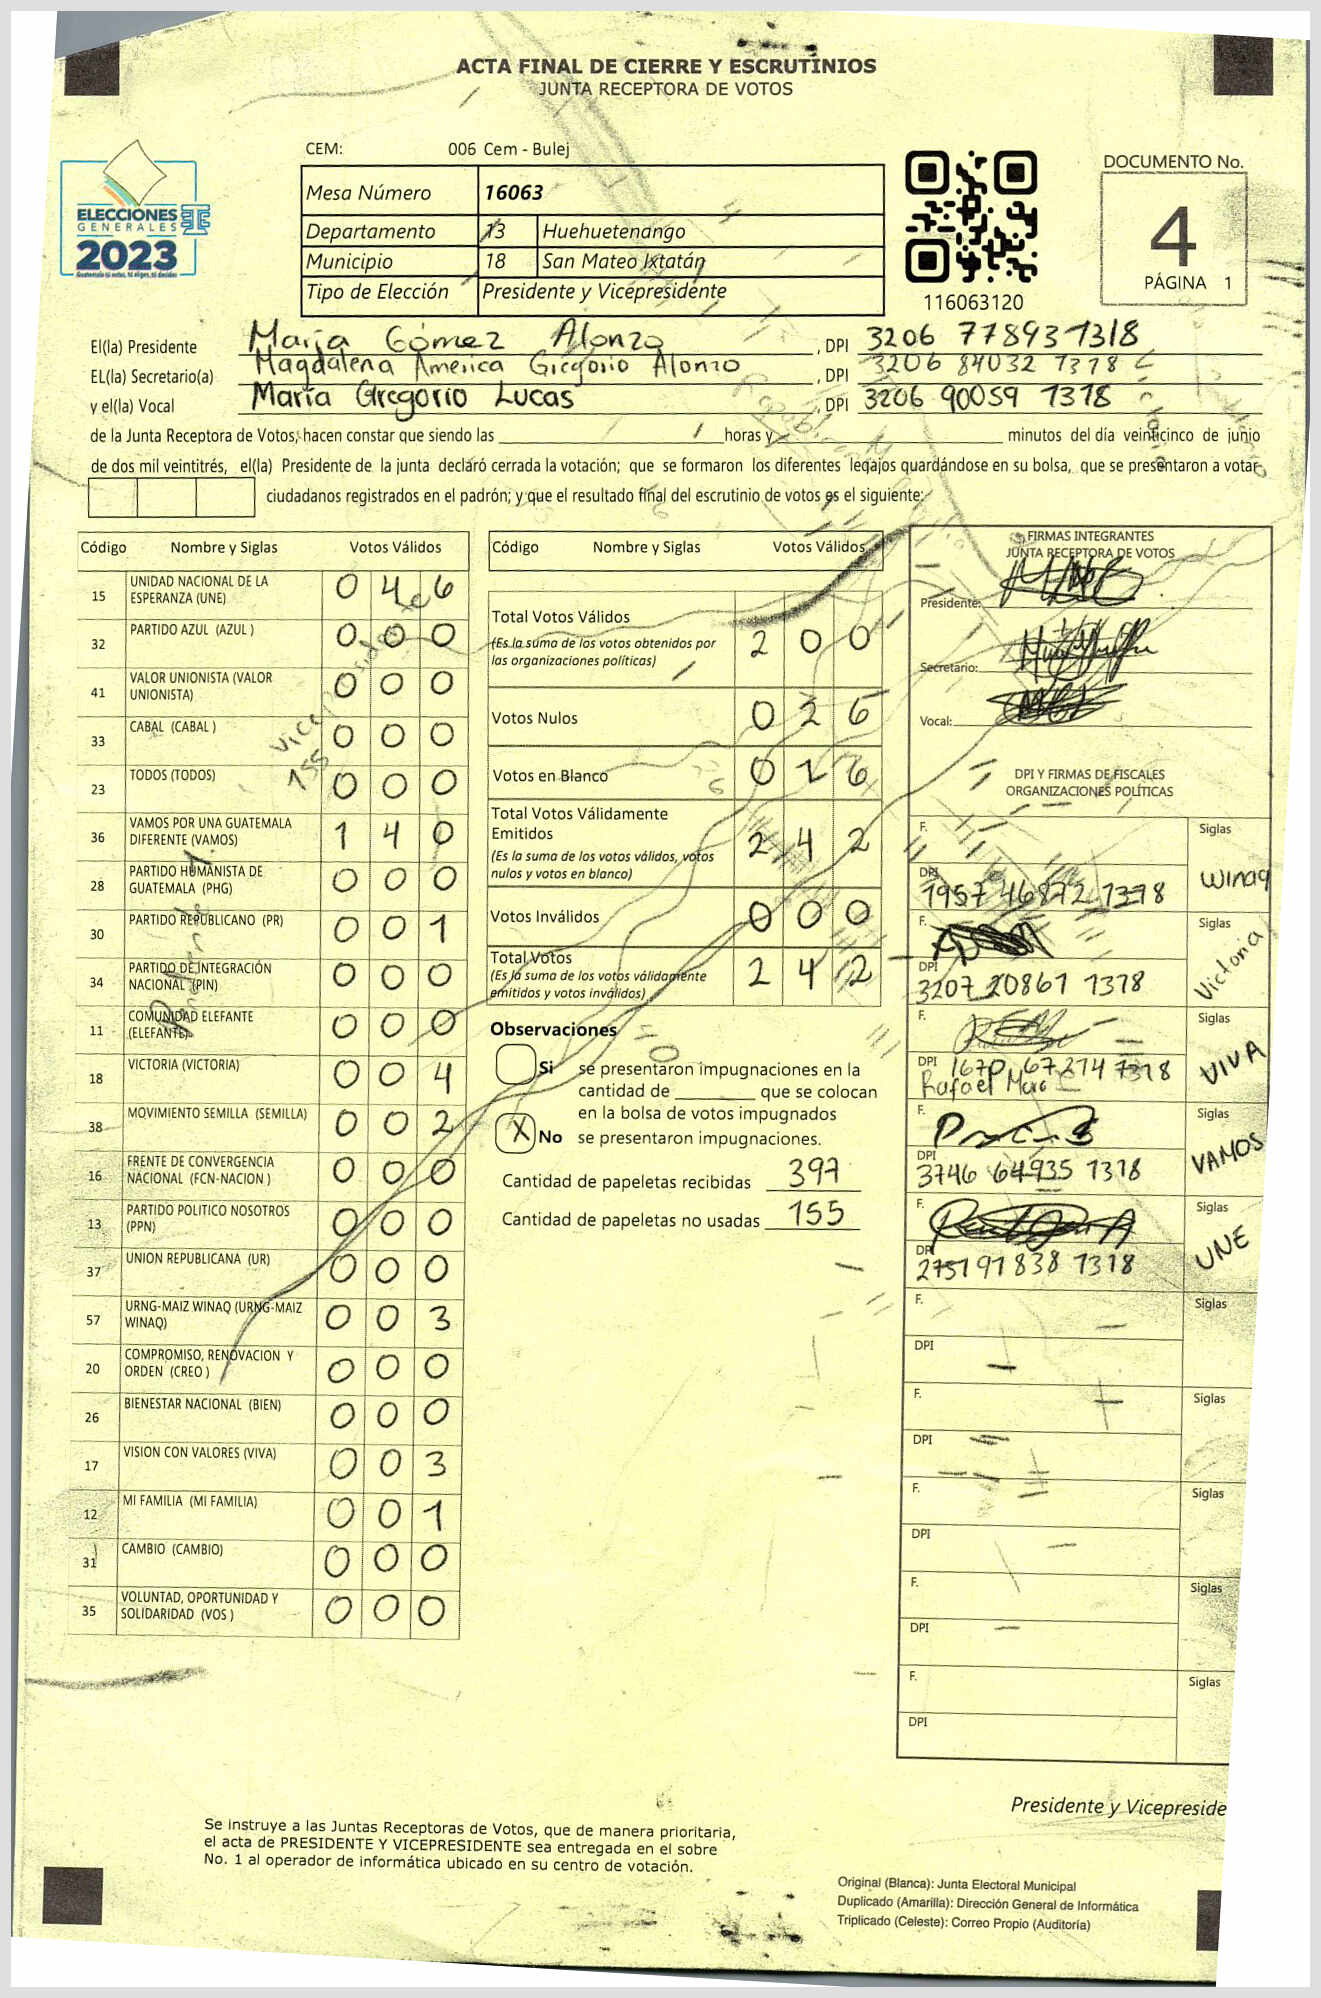 ACTA FINAL DE CIERRE Y ESCRUTINIOS
JUNTA RECEPTORA DE VOTOS
ELECCIONES
GENERALES
2023
CEM: 006 Cem - Bulej
Mesa Número 16063
Departamento 13 Huehuetenango
Municipio 18 San Mateo Ixtatán
Tipo de Elección Presidente y Vicepresidente
116063120
DOCUMENTO No.
4
PÁGINA 1
El(la) Presidente María Gómez Alonzo, DPI 3206 77893 1318
EL(la) Secretario(a) Magdalena America Gregorio Alonzo, DPI 3206 84032 1318
y el(la) Vocal María Gregorio Lucas, DPI 3206 90059 1318
de la Junta Receptora de Votos, hacen constar que siendo las horas y minutos del día veinticinco de junio
de dos mil veintitrés, el(la) Presidente de la junta declaró cerrada la votación; que se formaron los diferentes legajos guardándose en su bolsa, que se presentaron a votar
ciudadanos registrados en el padrón; y que el resultado final del escrutinio de votos es el siguiente:
Código Nombre y Siglas Votos Válidos
15 UNIDAD NACIONAL DE LA ESPERANZA (UNE) 0 4 6
32 PARTIDO AZUL (AZUL ) 0 0 0
41 VALOR UNIONISTA (VALOR UNIONISTA) 0 0 0
33 CABAL (CABAL ) 0 0 0
23 TODOS (TODOS) 0 0 0
36 VAMOS POR UNA GUATEMALA DIFERENTE (VAMOS) 1 4 0
28 PARTIDO HUMANISTA DE GUATEMALA (PHG) 0 0 0
30 PARTIDO REPUBLICANO (PR) 0 0 1
34 PARTIDO DE INTEGRACIÓN NACIONAL (PIN) 0 0 0
11 COMUNIDAD ELEFANTE (ELEFANTE) 0 0 0
18 VICTORIA (VICTORIA) 0 0 4
38 MOVIMIENTO SEMILLA (SEMILLA) 0 0 2
16 FRENTE DE CONVERGENCIA NACIONAL (FCN-NACION ) 0 0 0
13 PARTIDO POLITICO NOSOTROS (PPN) 0 0 0
37 UNION REPUBLICANA (UR) 0 0 0
57 URNG-MAIZ WINAQ (URNG-MAIZ WINAQ) 0 0 3
20 COMPROMISO, RENOVACION Y ORDEN (CREO ) 0 0 0
26 BIENESTAR NACIONAL (BIEN) 0 0 0
17 VISION CON VALORES (VIVA) 0 0 3
12 MI FAMILIA (MI FAMILIA) 0 0 1
31 CAMBIO (CAMBIO) 0 0 0
35 VOLUNTAD, OPORTUNIDAD Y SOLIDARIDAD (VOS ) 0 0 0
Código Nombre y Siglas Votos Válidos
Total Votos Válidos 2 0 0
(Es la suma de los votos obtenidos por
las organizaciones políticas)
Votos Nulos 0 2 6
Votos en Blanco 0 1 6
Total Votos Válidamente
Emitidos 2 4 2
(Es la suma de los votos válidos, votos
nulos y votos en blanco)
Votos Inválidos 0 0 0
Total Votos 2 4 2
(Es la suma de los votos válidamente
emitidos y votos inválidos)
Observaciones
Si se presentaron impugnaciones en la
cantidad de que se colocan
en la bolsa de votos impugnados
X No se presentaron impugnaciones.
Cantidad de papeletas recibidas 397
Cantidad de papeletas no usadas 155
FIRMAS INTEGRANTES
JUNTA RECEPTORA DE VOTOS
Presidente:
Secretario:
Vocal:
DPI Y FIRMAS DE FISCALES
ORGANIZACIONES POLÍTICAS
F. Siglas
DPI 1957 46872 1318 Winaq
F. Siglas
DPI 3207 20861 1318 Victoria
F. Siglas
DPI 1670 67274 1318 VIVA
Rafael
F. Siglas
DPI 3746 64935 1318 VAMOS
F. Siglas
DPI 2751 91838 1318 UNE
F. Siglas
DPI
F. Siglas
DPI
F. Siglas
DPI
F. Siglas
DPI
F. Siglas
DPI
Presidente y Vicepreside
Se instruye a las Juntas Receptoras de Votos, que de manera prioritaria,
el acta de PRESIDENTE Y VICEPRESIDENTE sea entregada en el sobre
No. 1 al operador de informática ubicado en su centro de votación.
Original (Blanca): Junta Electoral Municipal
Duplicado (Amarilla): Dirección General de Informática
Triplicado (Celeste): Correo Propio (Auditoría)